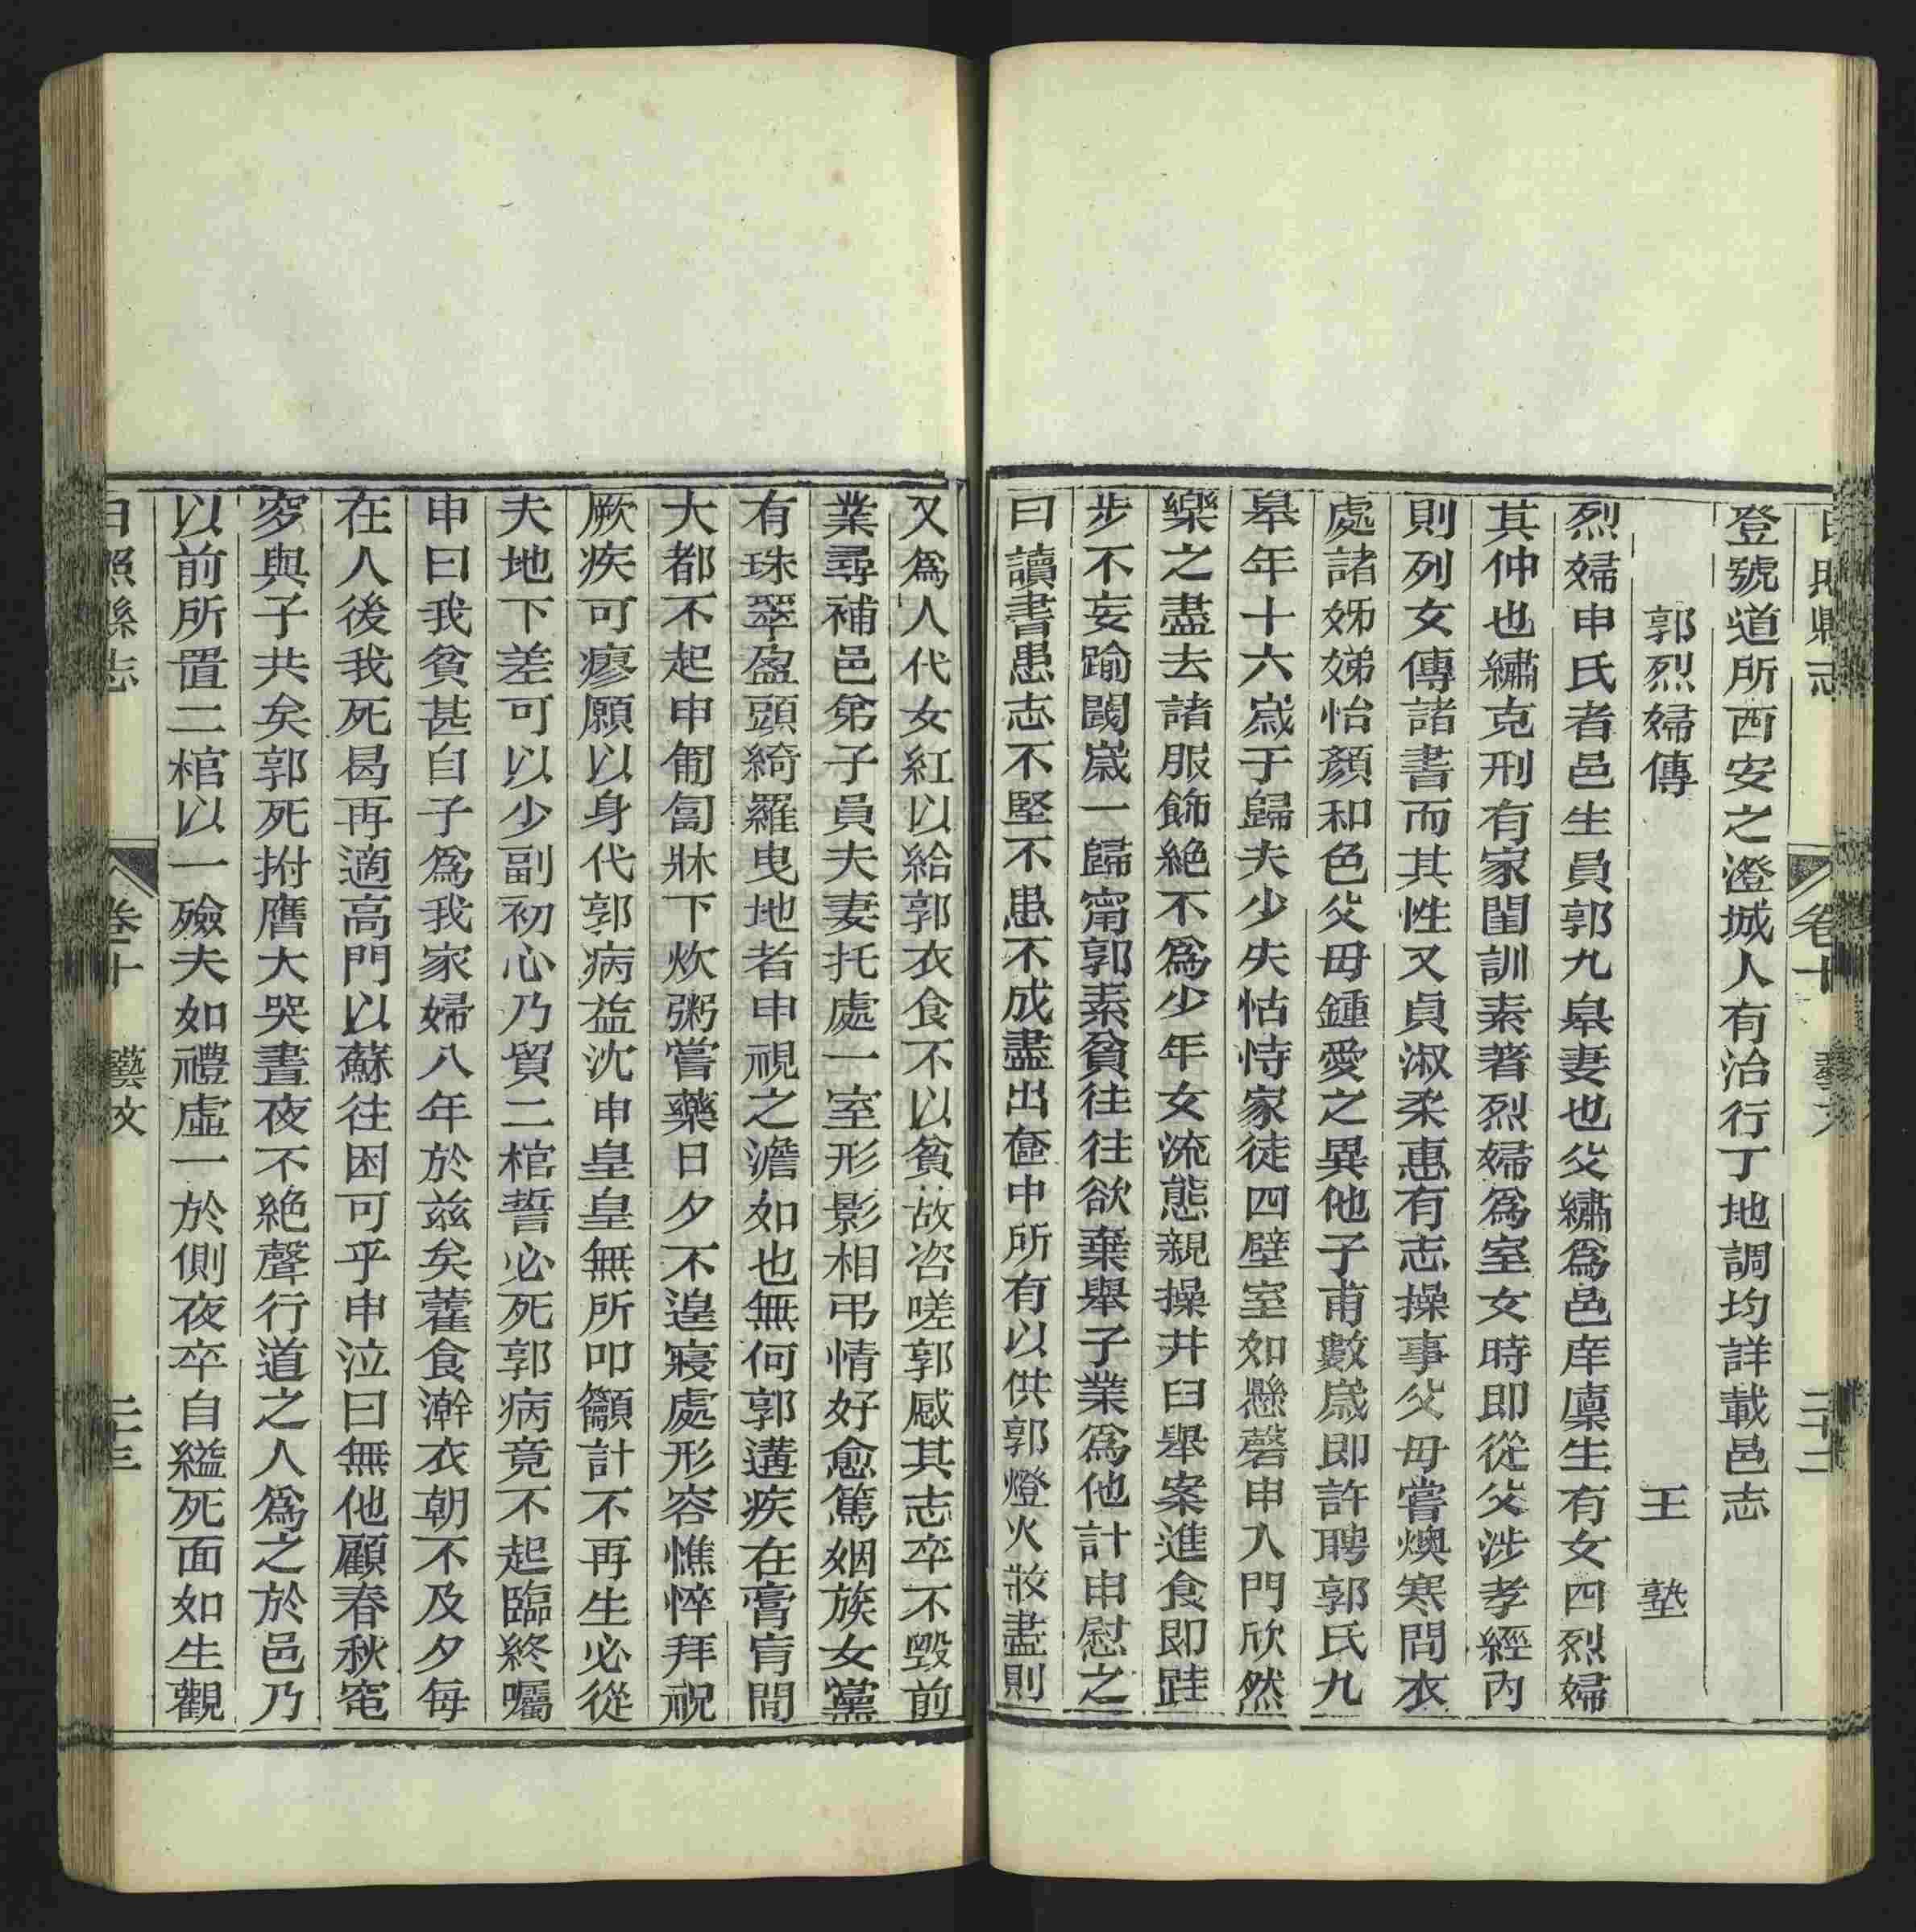 日照縣志 卷十 藝文 二十二
登號道所西安之澄城人有治行丁地調均詳載邑志
郭烈婦傳 王 塾
烈婦申氏者邑生員郭九臯妻也父繡爲邑庠廩生有女四烈婦
其仲也繡克刑有家閨訓素著烈婦爲室女時即從父涉孝經內
則列女傳諸書而其性又貞淑柔惠有志操事父母嘗燠寒問衣
處諸姊娣怡顏和色父母鍾愛之異他子甫數歲即許聘郭氏九
臯年十六歲于歸夫少失怙恃家徒四壁室如懸磬申入門欣然
樂之盡去諸服飾絶不爲少年女流態親操井臼舉案進食即跬
步不妄踰閾歲一歸甯郭素貧往往欲棄舉子業爲他計申慰之
曰讀書患志不堅不患不成盡出奩中所有以供郭燈火妝盡則
又爲人代女紅以給郭衣食不以貧故咨嗟郭感其志卒不毀前
業尋補邑弟子員夫妻托處一室形影相弔情好愈篤姻族女黨
有珠翠盈頭綺羅曳地者申視之澹如也無何郭遘疾在膏肓間
大都不起申匍匐牀下炊粥嘗藥日夕不遑寢處形容憔悴拜祝
厥疾可瘳願以身代郭病益沈申皇皇無所叩籲計不再生必從
夫地下差可以少副初心乃貿二棺誓必死郭病竟不起臨終囑
申曰我貧甚自子爲我家婦八年於兹矣藿食澣衣朝不及夕每
在人後我死曷再適高門以蘇往困可乎申泣曰無他顧春秋窀
穸與子共矣郭死拊膺大哭晝夜不絶聲行道之人爲之於邑乃
以前所置二棺以一殮夫如禮虛一於側夜卒自縊死面如生觀
日照縣志 卷十 藝文 二十三